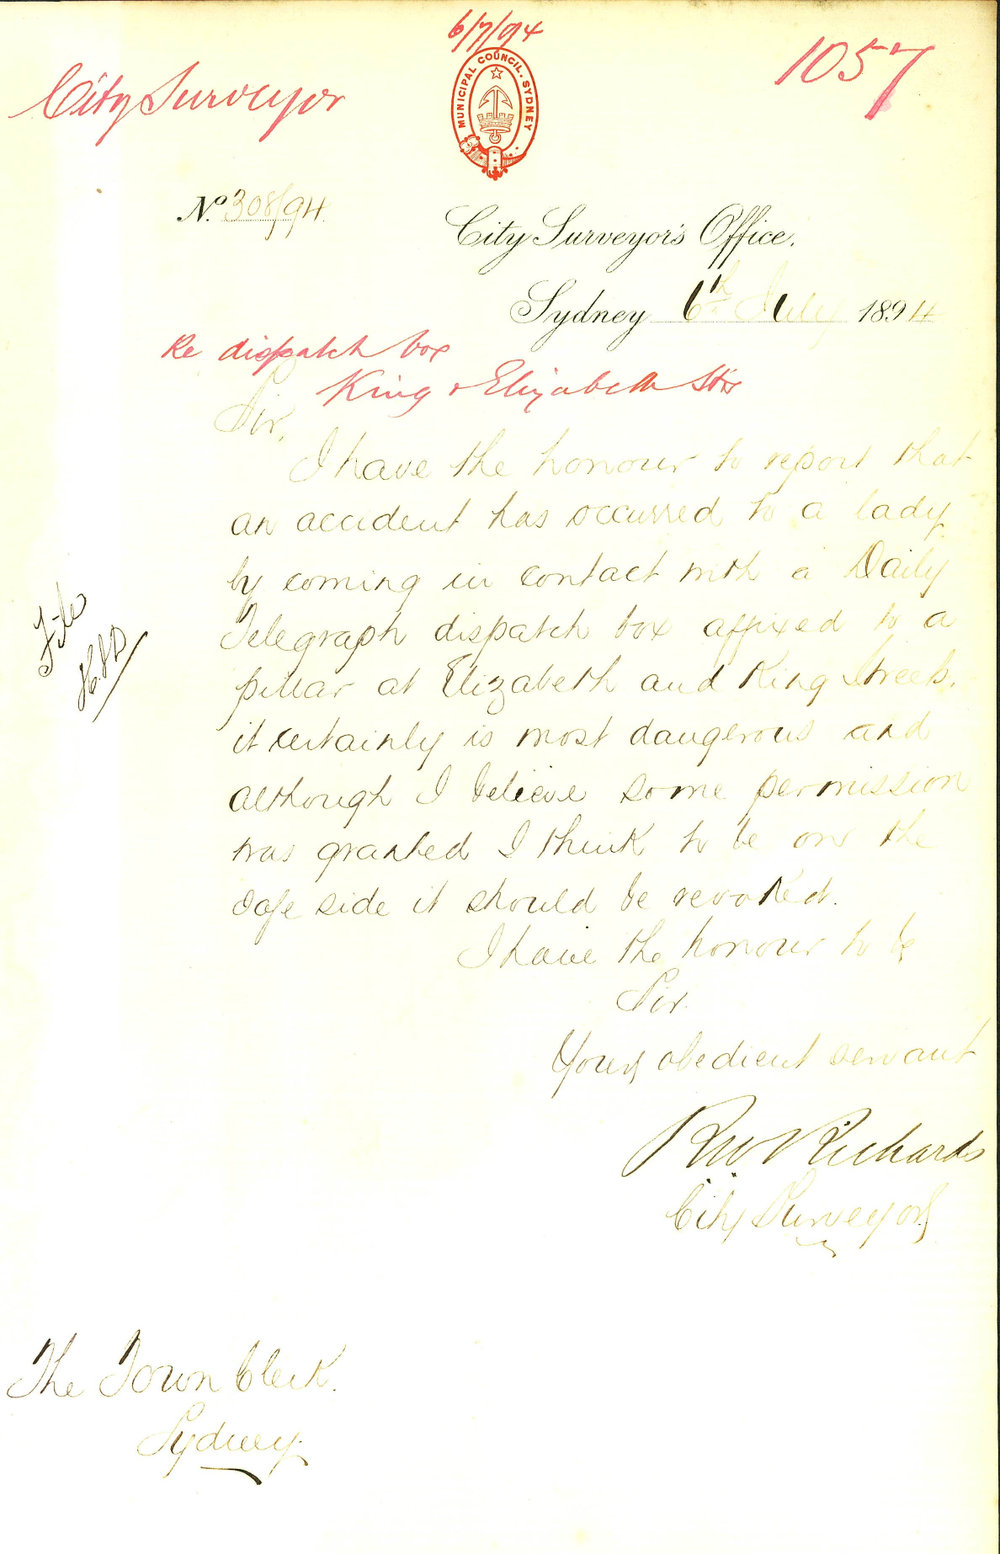 6/7/94
1057
City Surveyor
MUNICIPAL COUNCIL. SYDNEY
No. 308/94
City Surveyor's Office.
Sydney 6th July 1894
Re dispatch box
King & Elizabeth Sts
Sir,
I have the honour to report that
an accident has occurred to a lady
by coming in contact with a Daily
Telegraph dispatch box affixed to a
pillar at Elizabeth and King Streets.
it certainly is most dangerous and
although I believe some permission
was granted I think to be on the
safe side it should be revoked.
I have the honour to be
Sir.
Your obedient servant
RW Richards
City Surveyor
File
The Town Clerk.
Sydney.